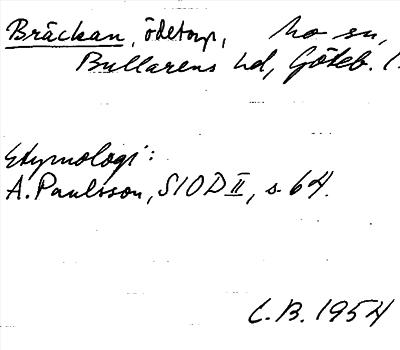 Bräckan, ödetorp, Mo sn,
Bullarens hd, Göteb. l.
Etymologi:
A. Paulsson, SIOD II, s. 64.
C.B. 1954